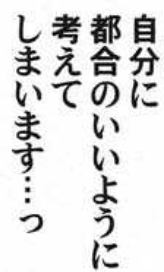 自分に
都合のいいように
考えて
しまいます…っ